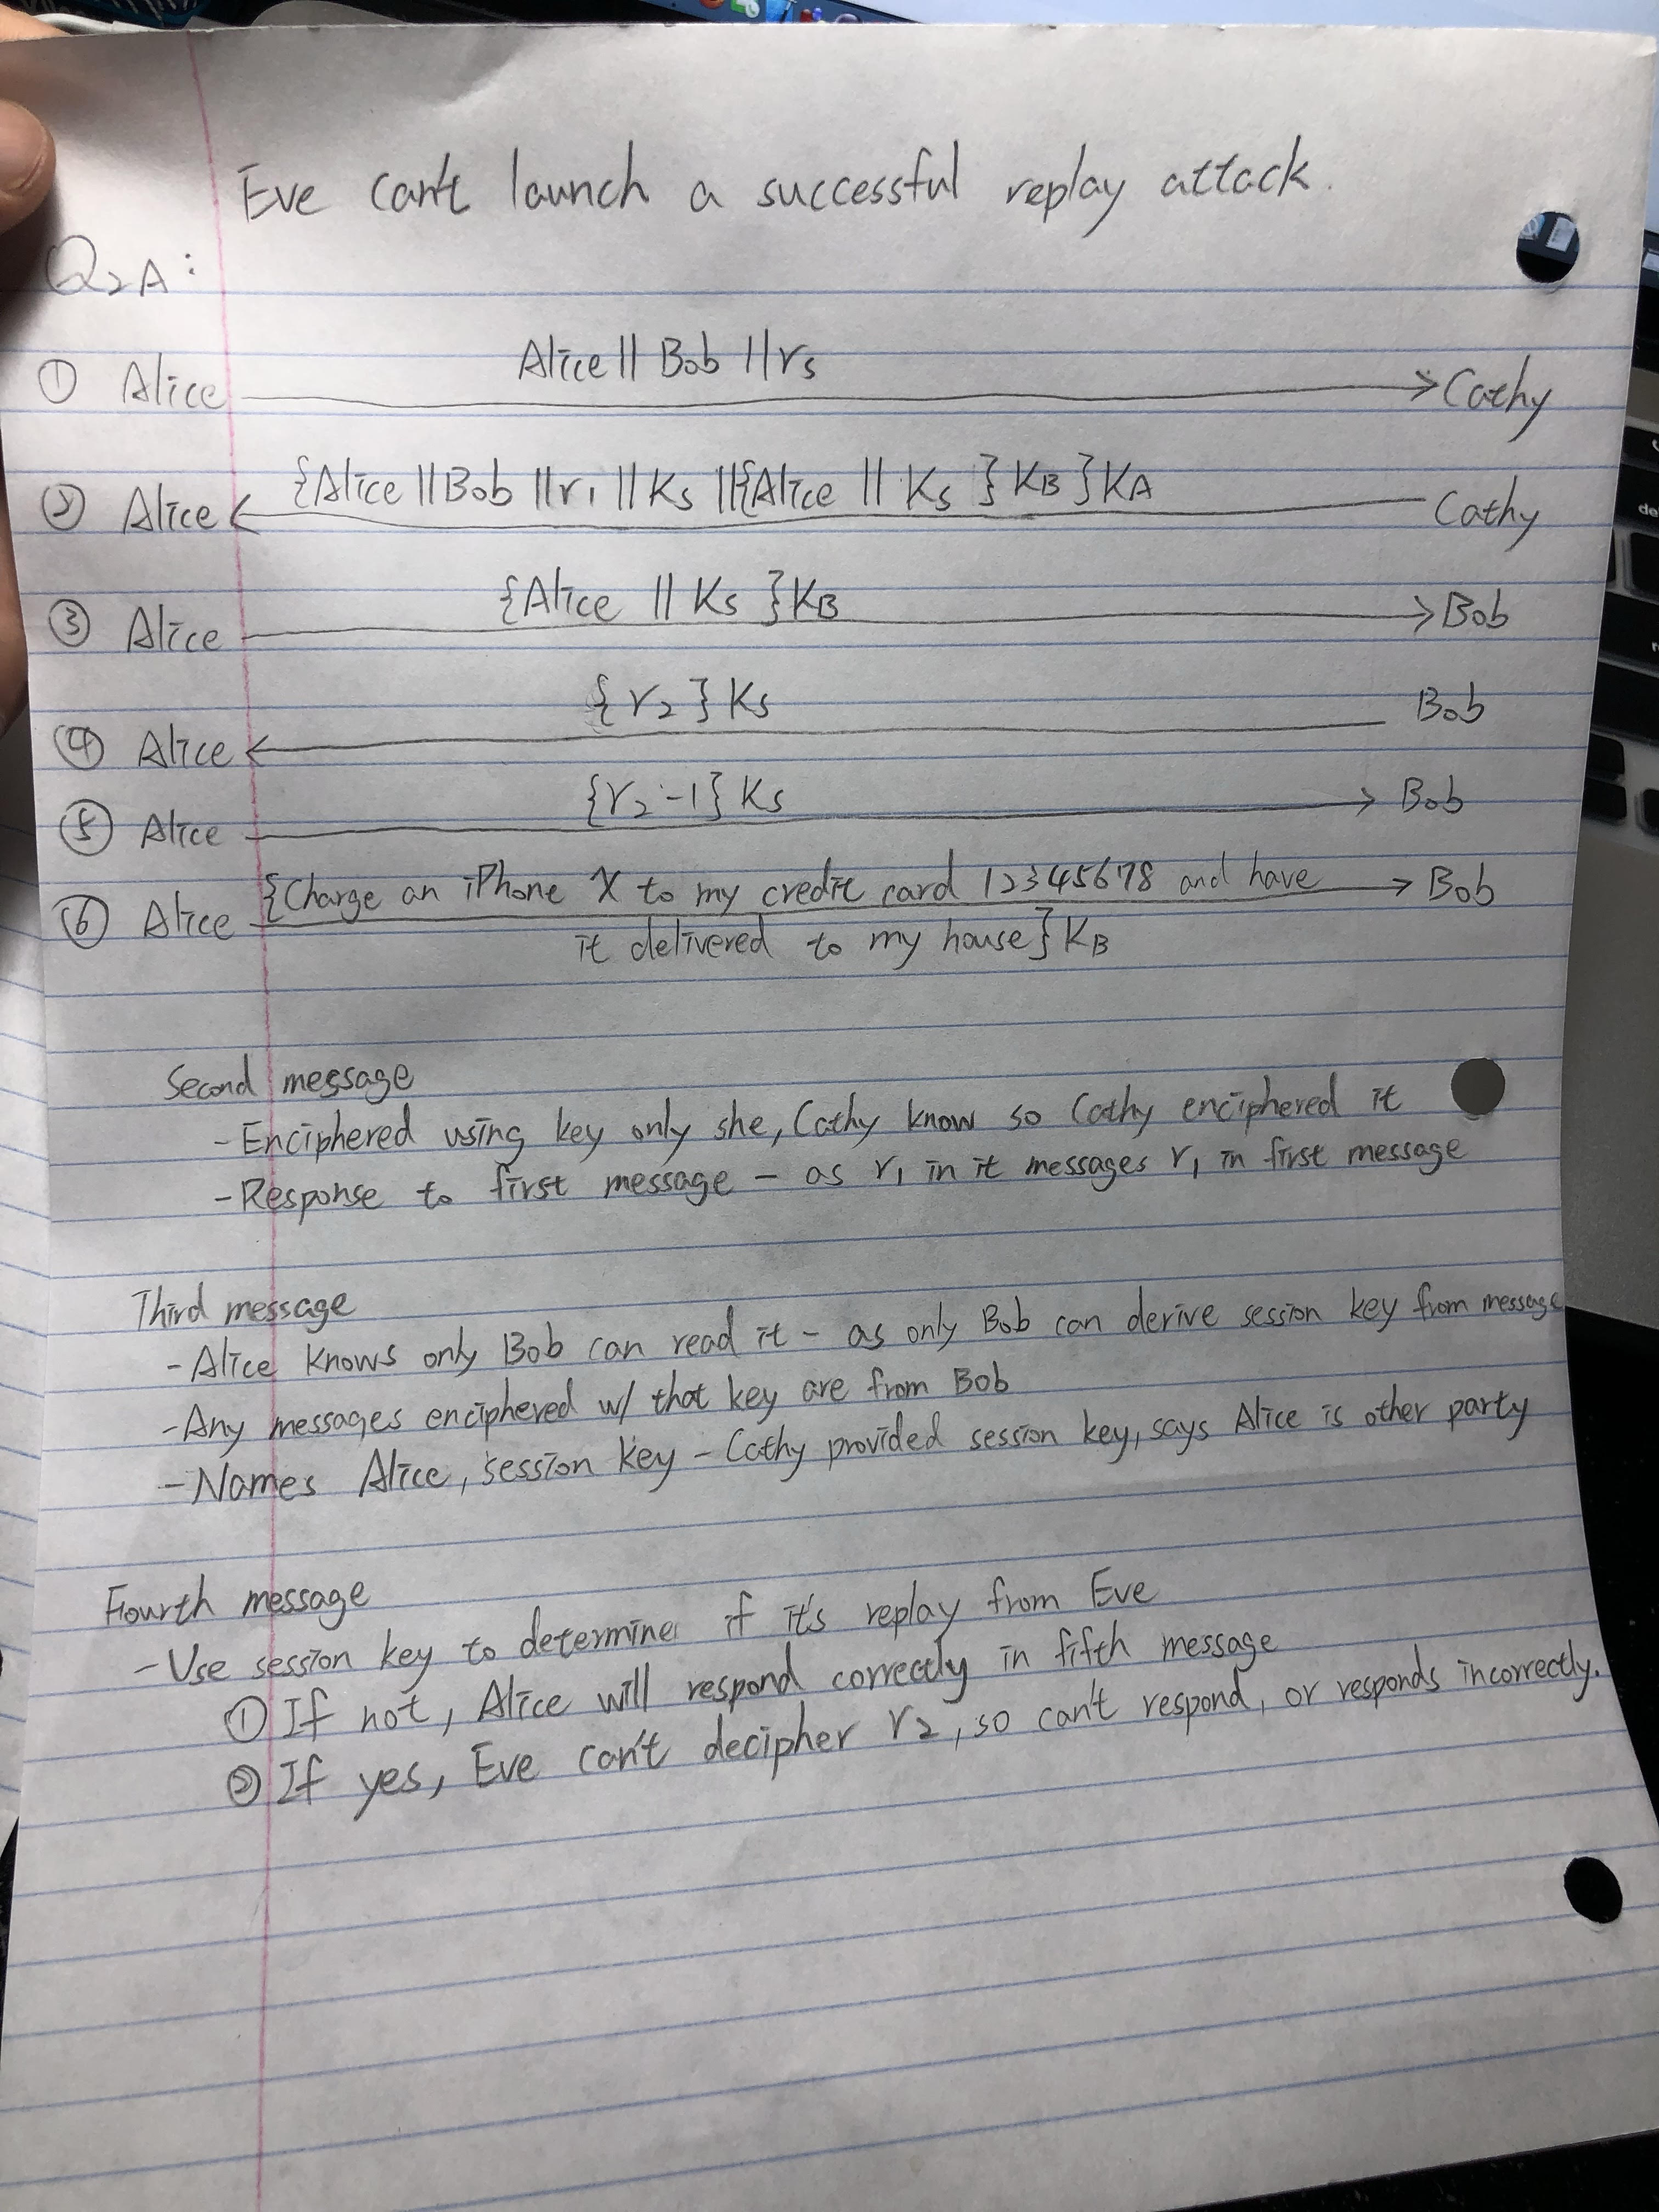 Eve can't launch a successful replay attack.
Q2A:
① Alice Alice || Bob || rs Cathy
② Alice {Alice || Bob || r1 || Ks || {Alice || Ks } KB } KA Cathy
③ Alice {Alice || Ks } KB Bob
④ Alice { r2 } Ks Bob
⑤ Alice {r2-1} Ks Bob
⑥ Alice {Charge an iPhone X to my credit card 12345678 and have Bob
it delivered to my house} KB
Second message
- Enciphered using key only she, Cathy know so Cathy enciphered it
- Response to first message - as r1 in it messages r1 in first message
Third message
- Alice knows only Bob can read it - as only Bob can derive session key from message
- Any messages enciphered w/ that key are from Bob
- Names Alice, session key - Cathy provided session key, says Alice is other party
Fourth message
- Use session key to determine if it's replay from Eve
① If not, Alice will respond correctly in fifth message
② If yes, Eve can't decipher r2, so can't respond, or responds incorrectly.